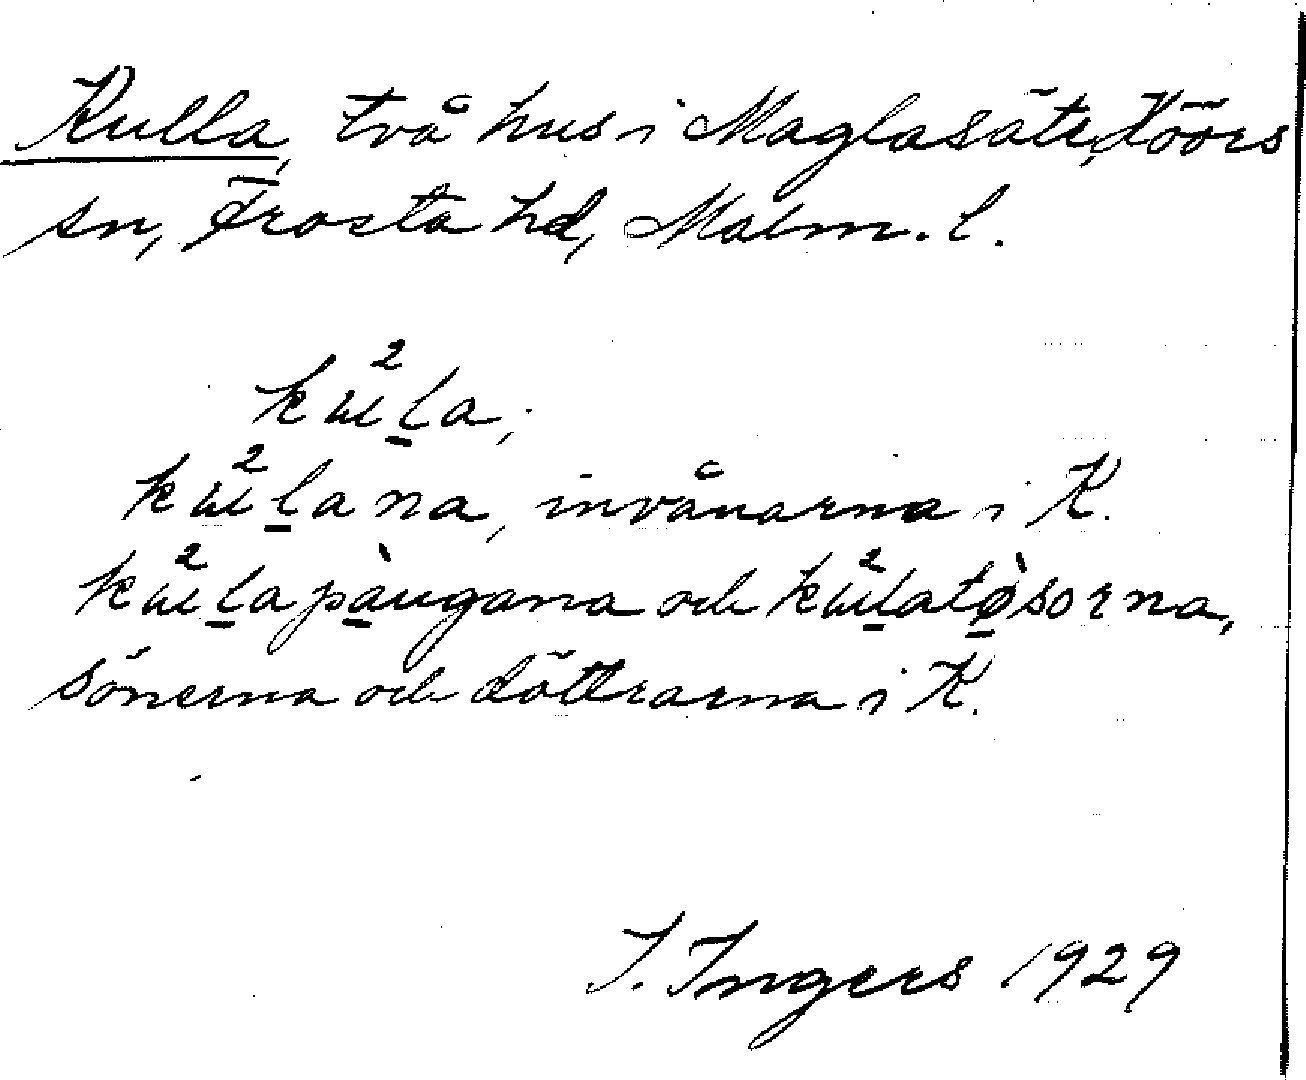 Kulla, två hus i Maglasäte, Höörs
sn, Frosta hd, Malm. l.
kɯ²l̲a,
kɯ²l̲ana, invånarna i K.
kɯ²l̲apà̲ugana och kɯ²l̲atø̲̀sorna,
sönerna och döttrarna i K.
I. Ingers 1929